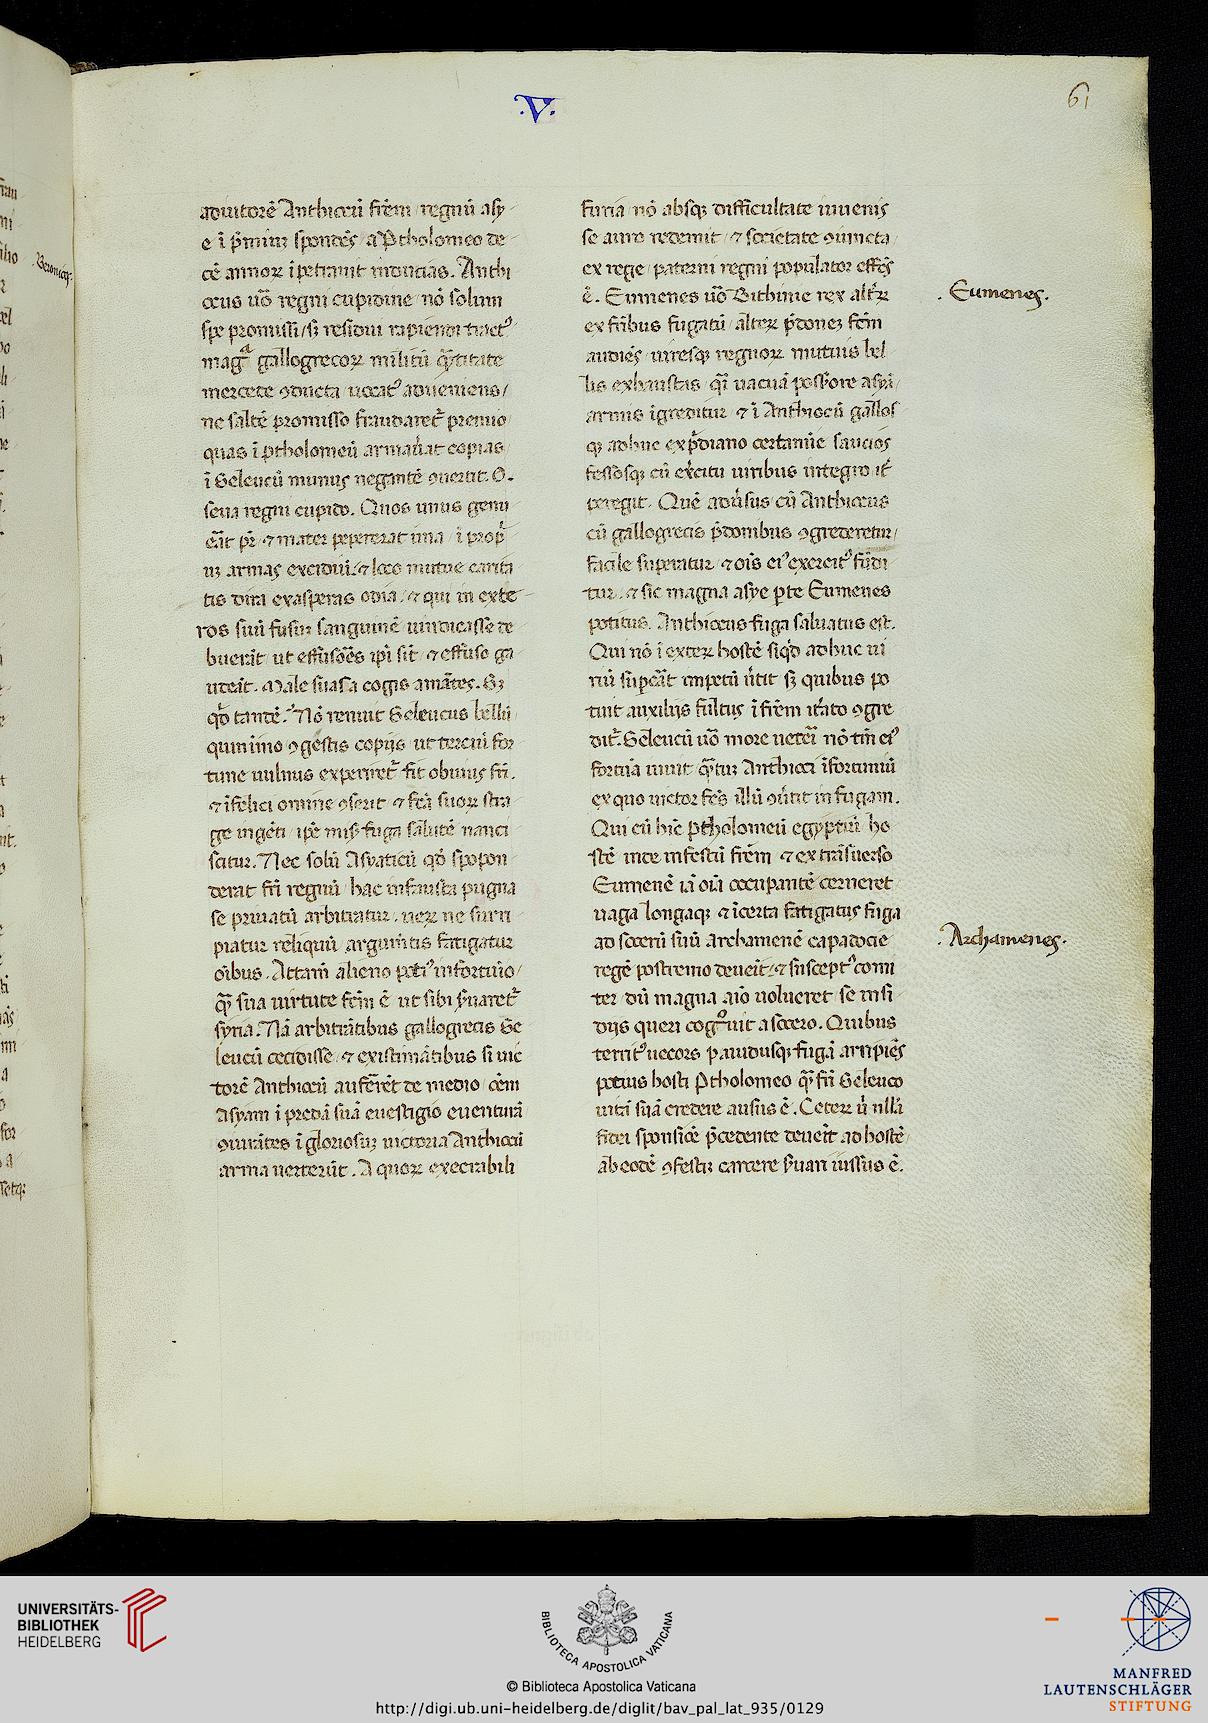 .V.
61
adiutorē Anthiocū frēm regnū asy
e ī p̄mium spondēs a Ptholomeo de
cē annoꝝ īpetrauit inducias. Anthi
ocus uō regni cupidine nō solum
spe promissi / sꝫ residui rapiendi tractꝰ
magᵃ gallogrecoꝝ militū q̄titate
mercede ꝯducta uocatꝰ adueniens /
ne saltē promisso fraudaret̄ premio
quas ī ptholomeū armau̓at copias
ī Seleucū munus negantē ꝯuertit. O.
seua regni cupido. Quos unus genu
erat pr̄ ⁊ mater pepererat una ī prop̓
in armas excidiū. ⁊ loco mutue carita
tis dira exasperas odia. ⁊ qui in exte
ros suū fusum sanguinē uindicasse de
buerāt ut effusōes ipi sīt ⁊ effuso ga
udeāt. Male suasa cogis amātes. Sꝫ
qd̄ tandē. Nō renuit Seleucus bellū
quinimo ꝯgestis copijs ut terciū for
tune uulnus experiret̄ fit obuius fri.
⁊ īfelici omine ꝯserit ⁊ fca suoꝝ stra
ge ingēti ipē mis̓ fuga salutē nanci
scitur. Nec solū Asyaticū qd̄ spopon
derat fri regnū hac infausta pugna
se priuatū arbitratur. ueꝝ ne surri
piatur reliquū argum̄tis fatigatur
oibus. Attam̄ alieno potiꝰ infortuīo
q̄ sua uirtute fcm ē ut sibi s̓uaret̄
syria. Nā arbitrātibus gallogrecis Se
leucū cecidisse ⁊ existimātibus si uic
torē Anthiocū auferēt de medio oēm
asyam ī predā suā euestigio euenturā
ꝯuītātes ī gloriosum uictoria Anthiocū
arma uerterūt. A quoꝝ execrabili
furia nō absqꝫ difficultate iuuenis
se auro redemit ⁊ societate ꝯiuncta
ex rege paterni regni populator effcs̄
ē. Eumenes uō Bithinie rex alt̓ꝝ
ex fribus fugatū alteꝝ p̄donem fcm
audiēs uiresqꝫ regnoꝝ mutuis bel
lis exhaustas q̄i uacuā possessore asyā
armis īgreditur ⁊ ī Anthiocū gallos
qꝫ adhuc ex p̄diano certamīe saucios
fessosqꝫ cū exercitu uiribus integro it̓
peregit. Quē adu̓sus cū Anthiocus
cū gallogrecis p̄donibus ꝯgrederetur
facile superatur ⁊ oīs eiꝰ exercitꝰ fūdi
tur. ⁊ sic magna asye p̱te Eumenes
potitus. Anthiocus fuga saluatus est.
Qui nō ī exteꝝ hostē siqd̓ adhuc ui
riū sup̱erāt impetū u̓tit sꝫ quibus po
tuit auxilijs fultus ī frēm it̓ato ꝯgre
dit̄. Seleucū uō more ueteri nō tm̄ eiꝰ
fortūa iuuit q̄tum Anthioci īfortuniū
ex quo uictor fcs̄ illū ꝯu̓tit in fugam.
Qui cū hīc ptholomeū egyptiū ho
stē inde infestū frēm ⁊ ex trāsuerso
Eumenē iā oīa occupantē cerneret
uaga longaqꝫ ⁊ īcerta fatigatus fuga
ad socerū suū archamenē capadocie
regē postremo deueīt. ⁊ susceptꝰ comi
ter dū magna aīo uolueret se insi
dijs queri cogᵒuit a socero. Quibus
territꝰ uecors pauidusqꝫ fugā arripiēs
potius hosti Ptholomeo q̄ fri Seleuco
uitā suā credere ausus ē. Ceteꝝ u̓ nulla
fidei sponsiōe p̄cedente deueīt ad hostē
ab eodē ꝯfestim carcere s̓uari iussus ē.
. Eumenes.
. Archamenes.
. Beronices.
UNIVERSITÄTS-
BIBLIOTHEK
HEIDELBERG
BIBLIOTECA APOSTOLICA VATICANA
© Biblioteca Apostolica Vaticana
http://digi.ub.uni-heidelberg.de/diglit/bav_pal_lat_935/0129
MANFRED
LAUTENSCHLÄGER
STIFTUNG